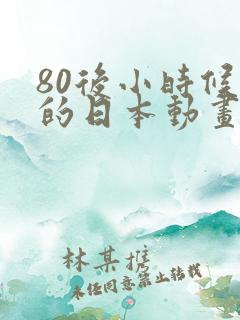 80後小時候
的日本動畫
林某推
未经同意禁止转载